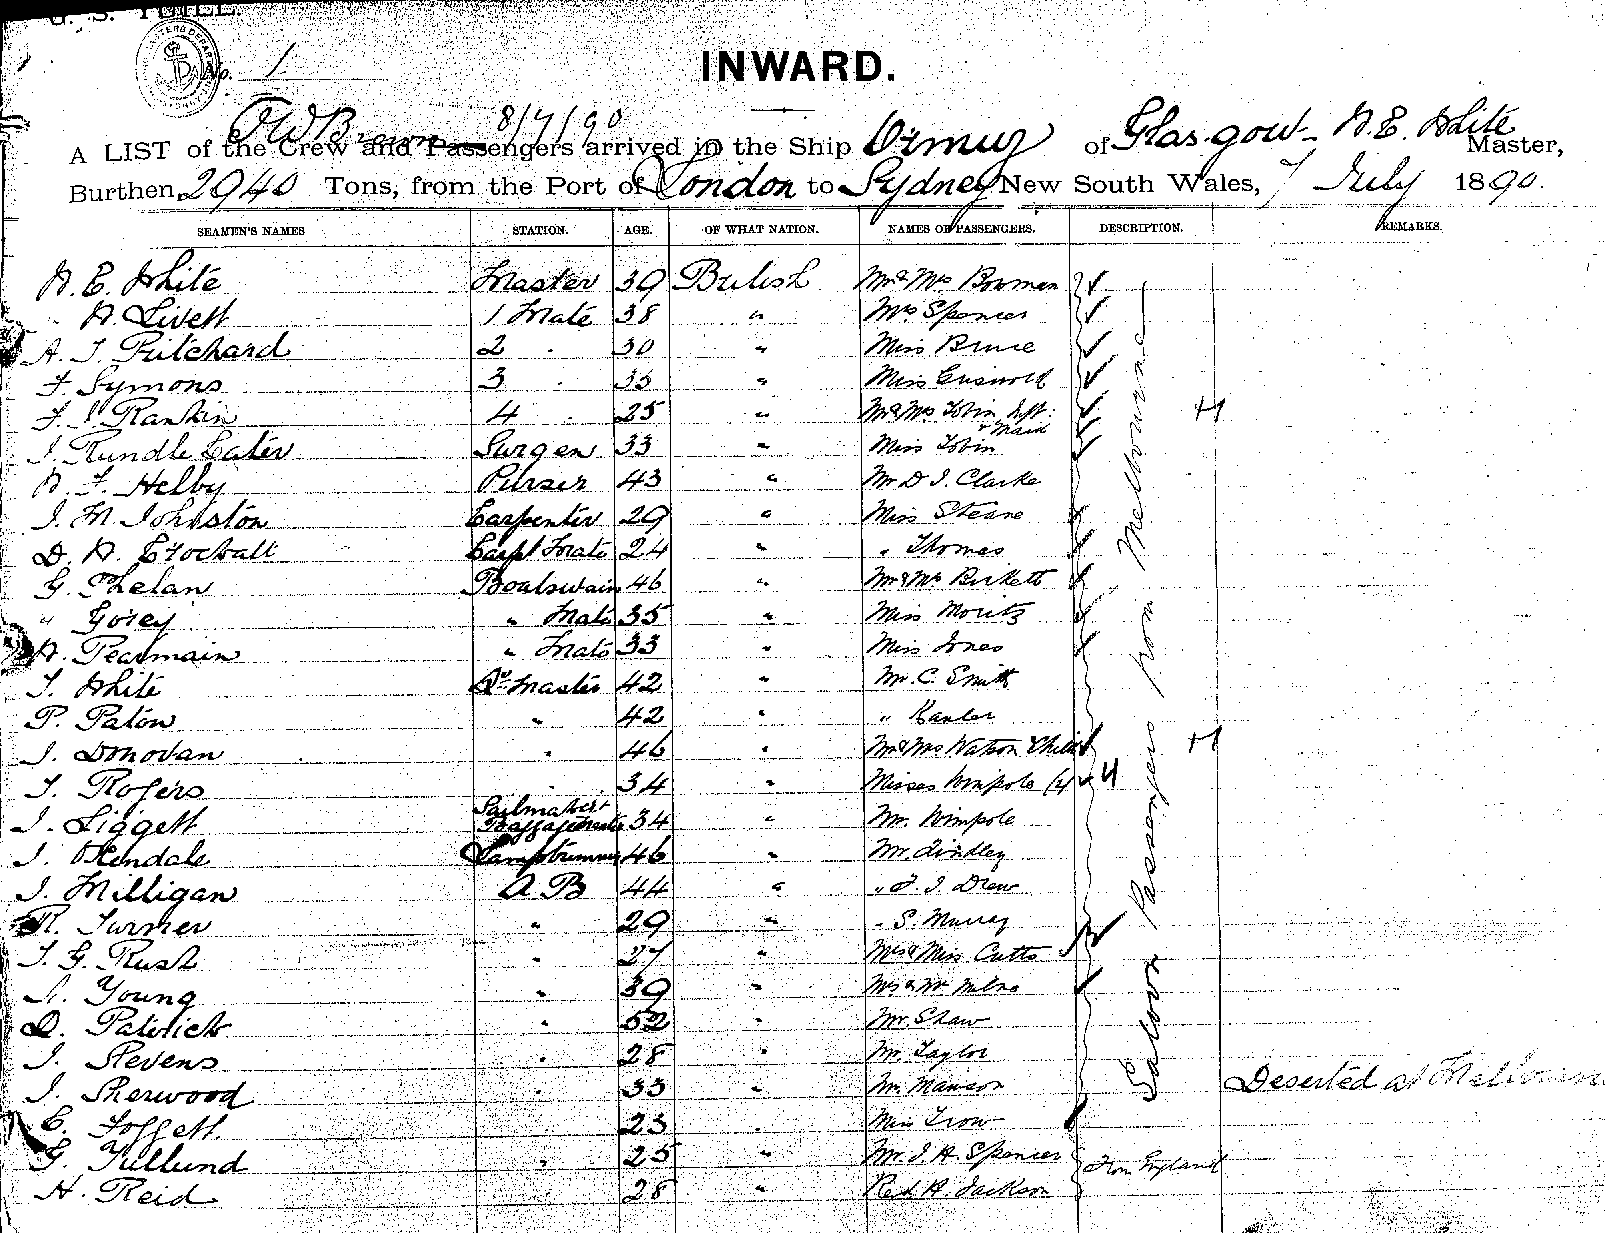 No. 1
INWARD.
J W Brown 8/7/90
A LIST of the Crew and Passengers arrived in the Ship Ormuz of Glasgow - N. E. White Master,
Burthen 2940 Tons, from the Port of London to Sydney New South Wales, 7 July 1890.
SEAMEN'S NAMES STATION. AGE. OF WHAT NATION. NAMES OF PASSENGERS. DESCRIPTION. REMARKS.
N. E. White Master 39 British Mr & Mrs Bowman
A. Livett 1 Mate 38 " Mrs Spencer
A. J. Pritchard 2 " 30 " Miss Bruce
F Symons 3 " 35 " Miss Griswold
F. J. Rankin 4 " 25 " Mr & Mrs Tobin Inft:
& Maid
J. Rundle Cater Surgen 33 " Miss Tobin
N. F. Helby Purser 43 " Mr D J. Clarke
J. M Johnston Carpenter 29 " Miss Steane
D. A. Crockatt Carpt Mate 24 " " Thomas
G. Phelan Boatswain 46 " Mr & Mrs Birkett
" Gorey " Mate 35 " Miss Moritz
A. Pearmain " Mate 33 " Miss Jones
T. White Qr Master 42 " Mr. C. Smith
P. Paton " 42 "
J. Donovan " 46 " Mr & Mrs Watson & Child
T. Rogers " 34 " Misses Wimpole (4 4
J. Liggett Sailmaker & Baggagemaster 34 " Mr. Wimpole
J. Kendale Lamptrimmer 46 " Mr. Lindley
J. Milligan A B 44 " " F. J. Drew
R. Turner " 29 " " S. Murray
T. G. Rush " 27 " Mrs & Miss Cutts
A. Young " 39 " Mrs & Mr Milne
D. Patrick " 52 " Mr. Shaw
J. Stevens " 28 " Mr. Taylor
J. Sherwood " 33 " Mr. Manson Deserted at Melbourne
C. Foggett 23 " Miss Trow
G. Tullund " 25 " Mr. J. H. Spencer From England
H. Reid 28 " Revd H. Jackson
Saloon Passengers from Melbourne